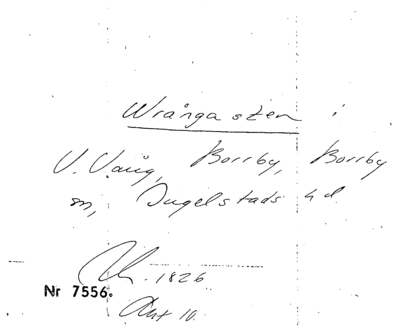 Wrånga sten i
V. Vång, Borrby, Borrby
sn, Ingelstads hd
1826
Nr 7556.
Akt 10.